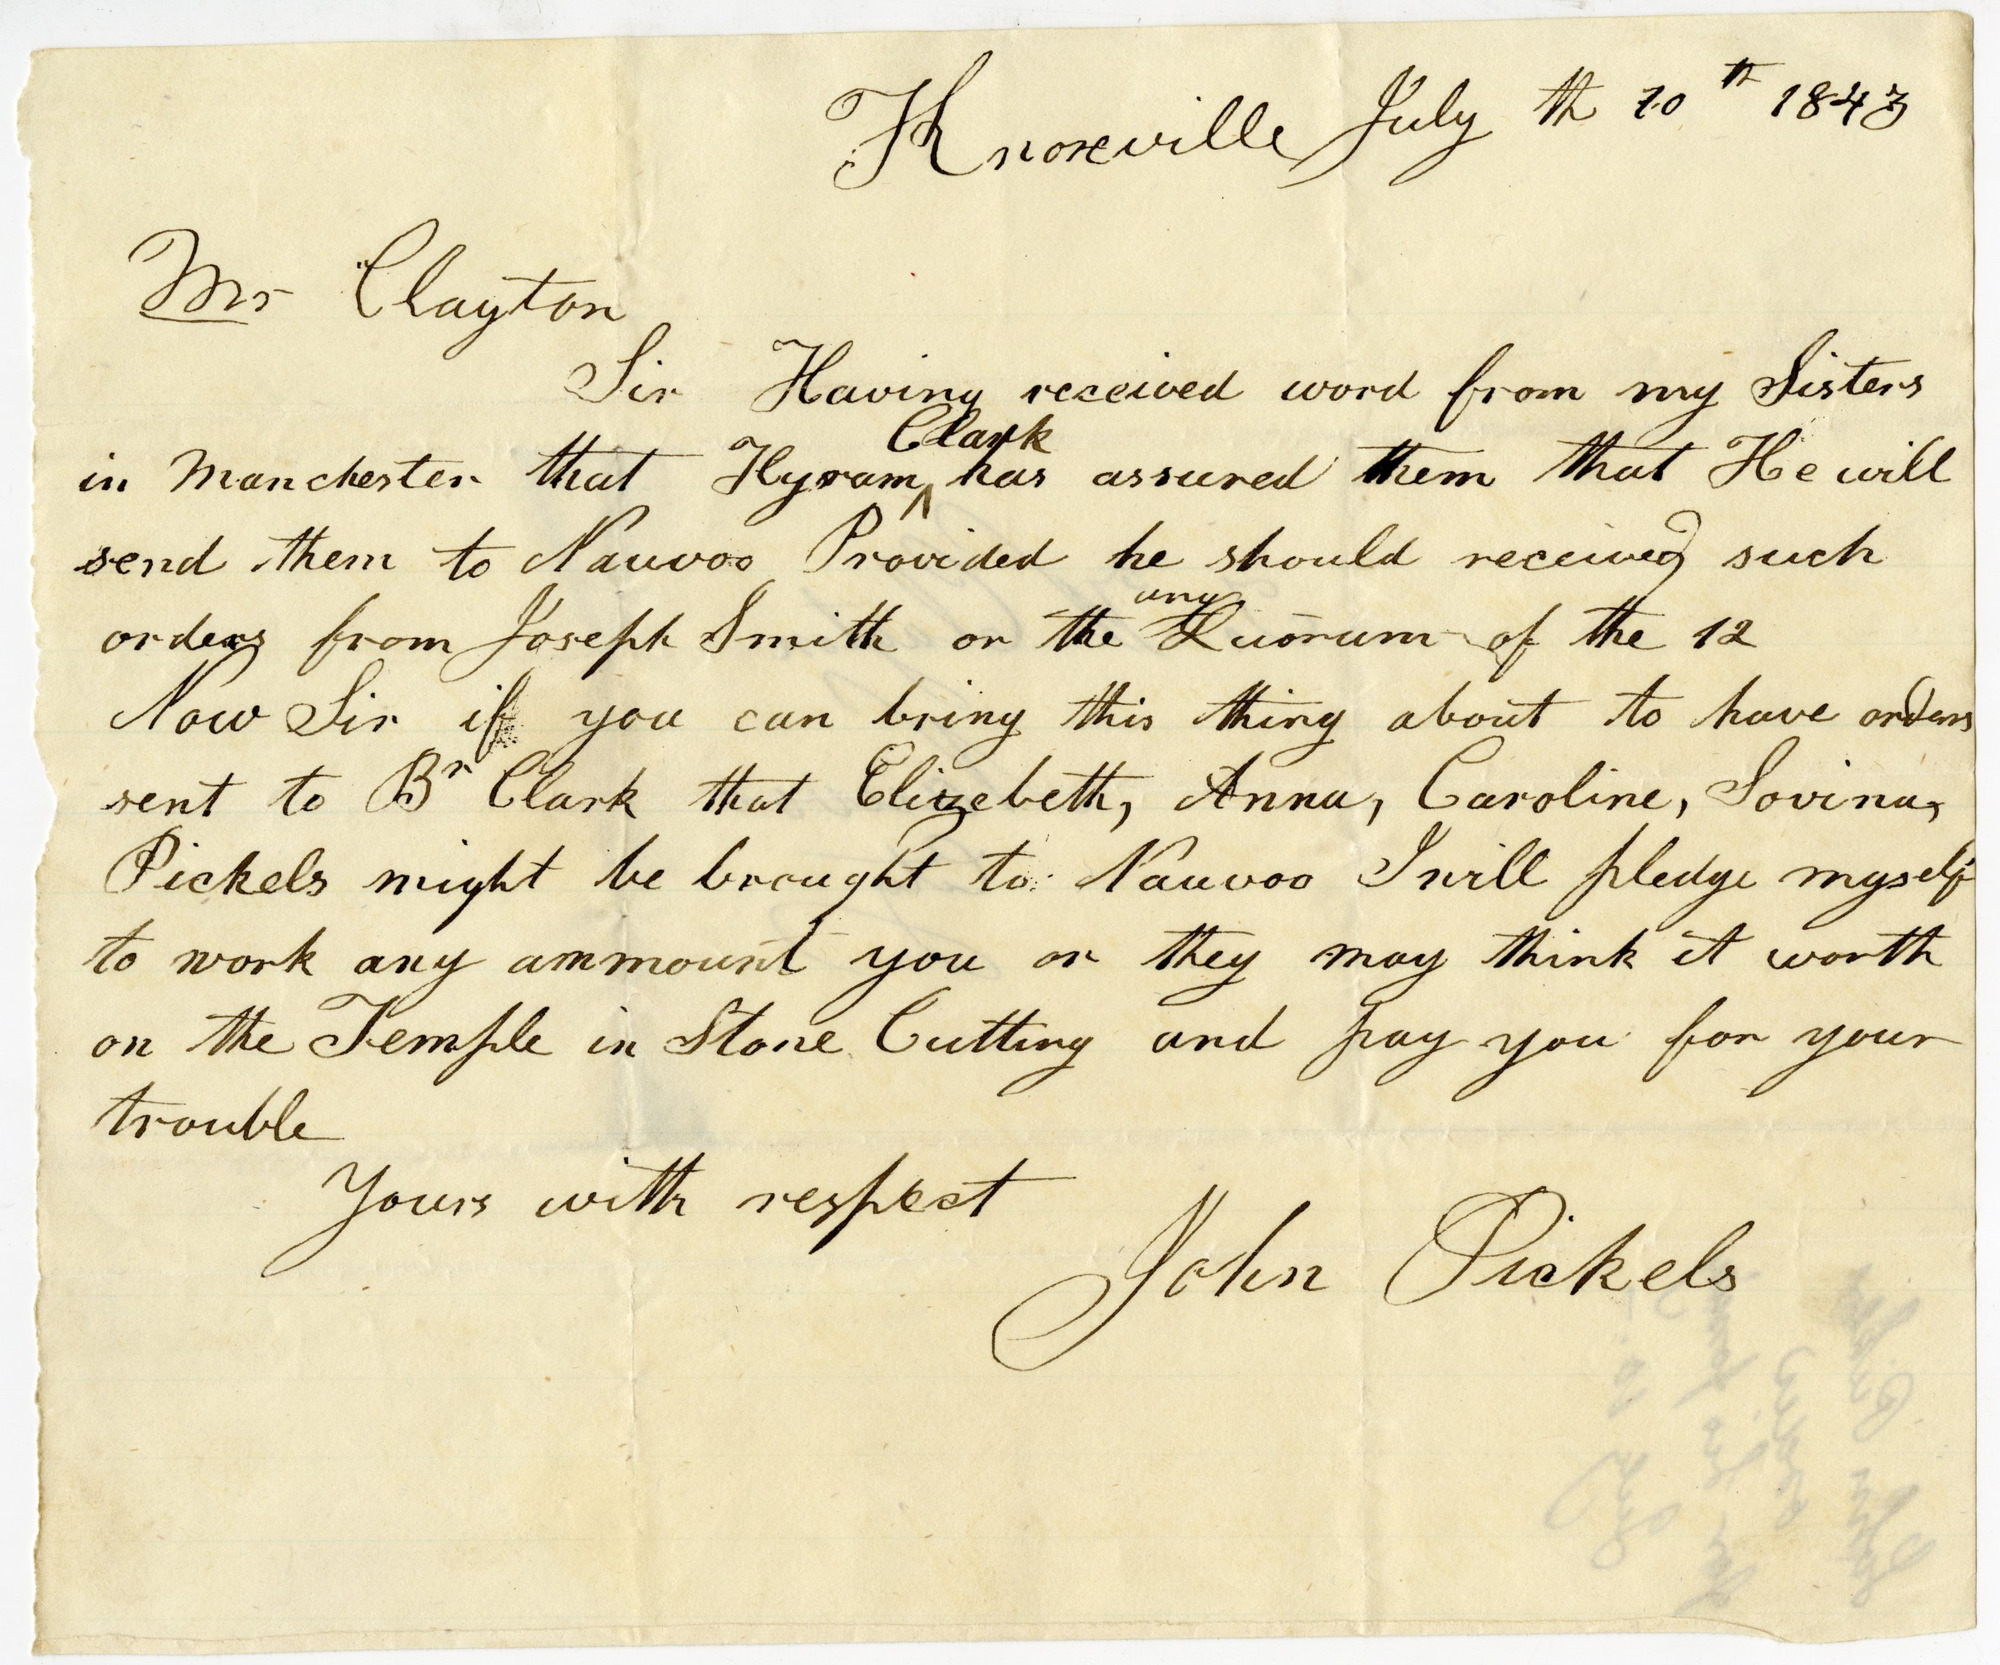 Knoxville July th 10th 1843
Mr Clayton
Sir Having received word from my Sisters
in Manchester that Hyram Clark has assured them that He will
send them to Nauvoo Provided he should received such
orders from Joseph Smith or the any Quorum of the 12
Now Sir if you can bring this thing about to have orders
sent to Br Clark that Elizebeth, Anna, Caroline, Sovina,
Pickels might be brought to Nauvoo I will pledge myself
to work any ammount you or they may think it worth
on the Temple in Stone Cutting and pay you for your
trouble
Yours with respect
John Pickels